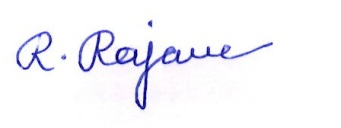 R. Rajane